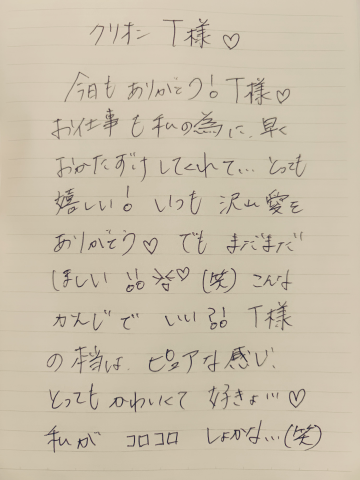 クリオネ T様♡
今日も ありがとう!。T様♡
お仕事も私の為に、早く
おかたずけしてくれて… とっても
嬉しい!。いつも 沢山愛を
ありがとう♡ でも まだまだ
ほしい !!♡ (笑) こんな
かんじで いい?!。T様
の本当は、ピュアな感じ、
とっても かわいくて 好きよ…♡
私が コロコロ しょかな…(笑)